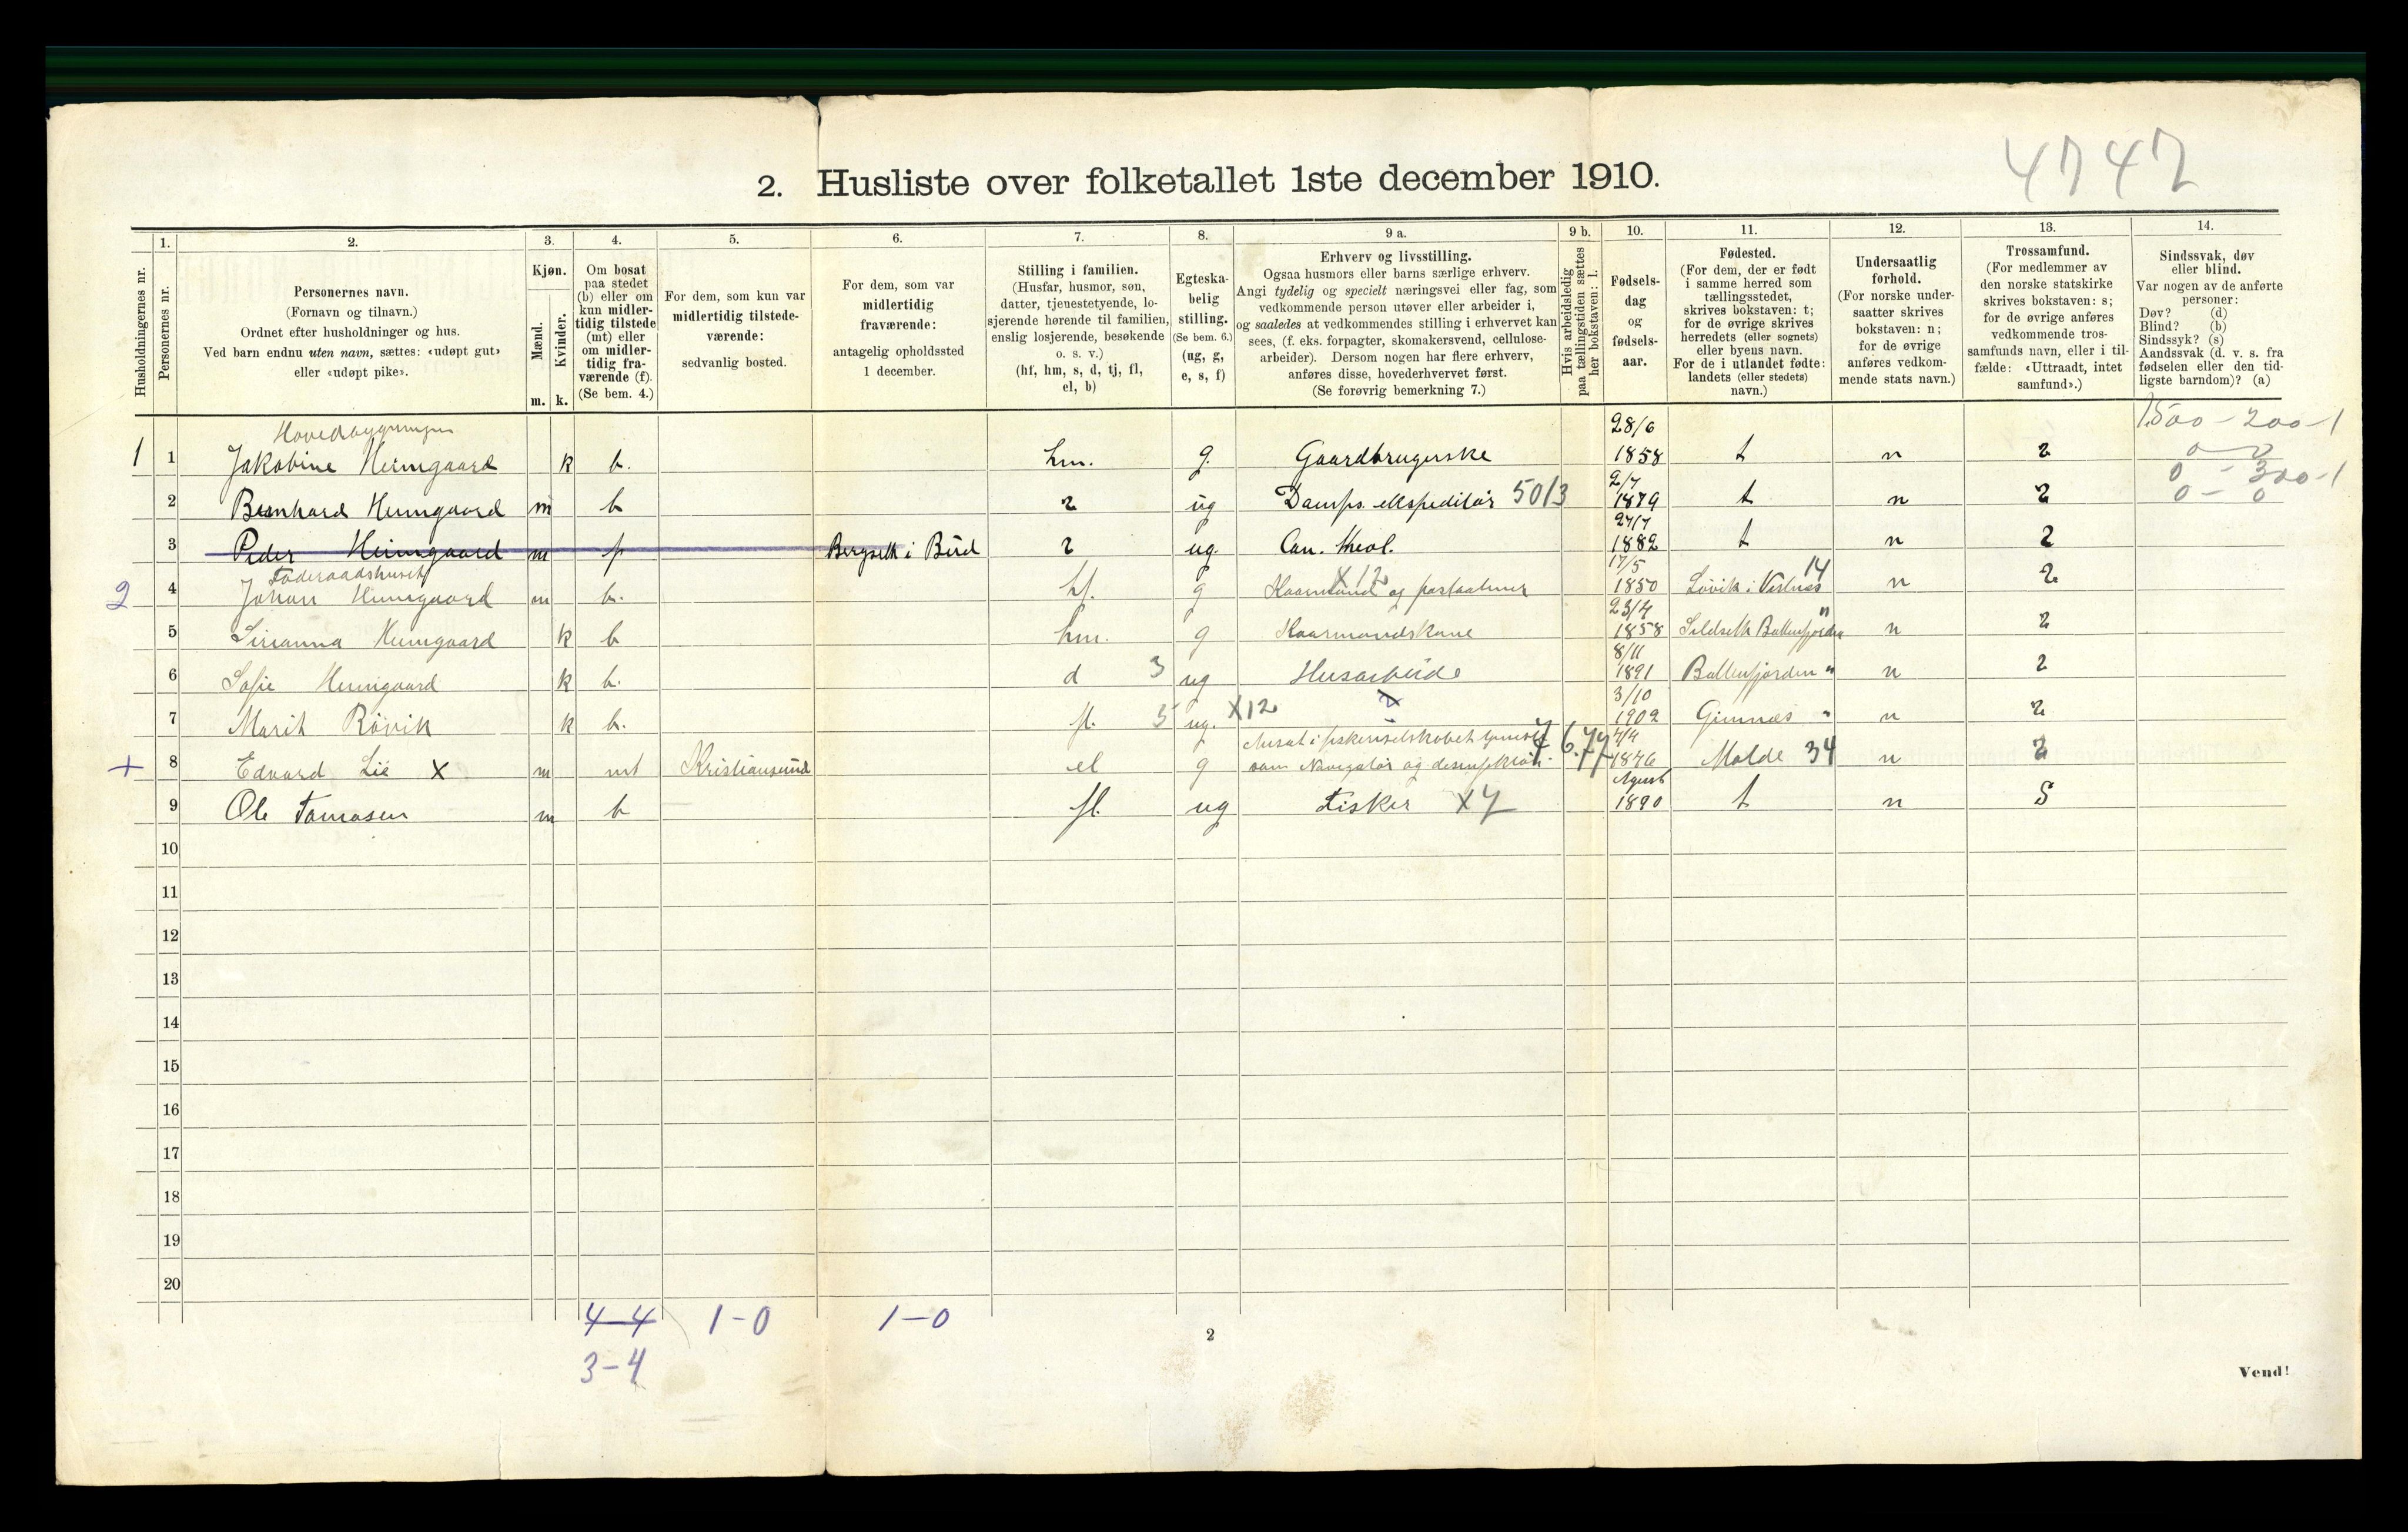 4747
2. Husliste over folketallet 1ste december 1910.
Husholdningernes nr.
1.
Personernes nr.
2.
Personernes navn.
(Fornavn og tilnavn.)
Ordnet efter husholdninger og hus.
Ved barn endnu uten navn, sættes: «udøpt gut»
eller «udøpt pike».
3.
Kjøn.
Mænd.
Kvinder.
m. k.
4.
Om bosat
paa stedet
(b) eller om
kun midler-
tidig tilstede
(mt) eller
om midler-
tidig fra-
værende (f).
(Se bem. 4.)
5.
For dem, som kun var
midlertidig tilstede-
værende:
sedvanlig bosted.
6.
For dem, som var
midlertidig
fraværende:
antagelig opholdssted
1 december.
7.
Stilling i familien.
(Husfar, husmor, søn,
datter, tjenestetyende, lo-
sjerende hørende til familien,
enslig losjerende, besøkende
o. s. v.)
(hf, hm, s, d, tj, fl,
el, b)
8.
Egteska-
belig
stilling.
(Se bem. 6.)
(ug, g,
e, s, f)
9 a.
Erhverv og livsstilling.
Ogsaa husmors eller barns særlige erhverv.
Angi tydelig og specielt næringsvei eller fag, som
vedkommende person utøver eller arbeider i,
og saaledes at vedkommendes stilling i erhvervet kan
sees, (f. eks. forpagter, skomakersvend, cellulose-
arbeider). Dersom nogen har flere erhverv,
anføres disse, hovederhvervet først.
(Se forøvrig bemerkning 7.)
9 b.
Hvis arbeidsledig
paa tællingstiden sættes
her bokstaven: l.
10.
Fødsels-
dag
og
fødsels-
aar.
11.
Fødested.
(For dem, der er født
i samme herred som
tællingsstedet,
skrives bokstaven: t;
for de øvrige skrives
herredets (eller sognets)
eller byens navn.
For de i utlandet fødte:
landets (eller stedets)
navn.)
12.
Undersaatlig
forhold.
(For norske under-
saatter skrives
bokstaven: n;
for de øvrige
anføres vedkom-
mende stats navn.)
13.
Trossamfund.
(For medlemmer av
den norske statskirke
skrives bokstaven: s;
for de øvrige anføres
vedkommende tros-
samfunds navn, eller i til-
fælde: «Uttraadt, intet
samfund».)
14.
Sindssvak, døv
eller blind.
Var nogen av de anførte
personer:
Døv? (d)
Blind? (b)
Sindssyk? (s)
Aandssvak (d. v. s. fra
fødselen eller den tid-
ligste barndom)? (a)
Hovedbygningen 28/6 1500-200-1
1 1 Jakobine Heimgaard k b. hm. g. Gaardbrugerske 1858 t n s 0 0
2/7 0 - 300-1
2 Bernhard Heimgaard m b s ug Damps. ekspeditør 5013 1879 t n s 0 - 0
27/7
3 Peder Heimgaard m f Bergseth i Bud s ug. Can. theol. 1882 t n s
Føderaadshuset X12 17/5 14
2 4 Johan Heimgaard m b. hf. g Kaarmand og postaabner 1850 Løvik i Vestnes n s
23/4 "
5 Sirianna Heimgaard k b hm. g Kaarmandskone 1858 Sildseth Battenfjorden n s
8/11
6 Sofie Heimgaard k b. d 3 ug Husarbeide 1891 Battenfjorden " n s
3/10
7 Marit Røvik k b. fl. 5 ug. X12 1902 Gimnes " n s
4/4
+ 8 Edvard Lie X m mt Kristiansund el g som Navigatør og 1876 Molde 34 n s
August
9 Ole Tomasen m b fl. ug Fisker X7 1890 t n S
10
11
12
13
14
15
16
17
18
19
20
4-4 1-0 1-0
3-4
2
Vend!